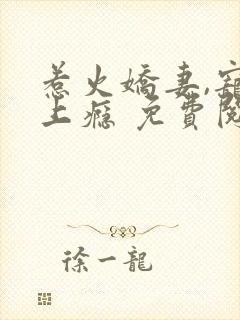 惹火嬌妻,寵
上癮 免費閱
徐一龍